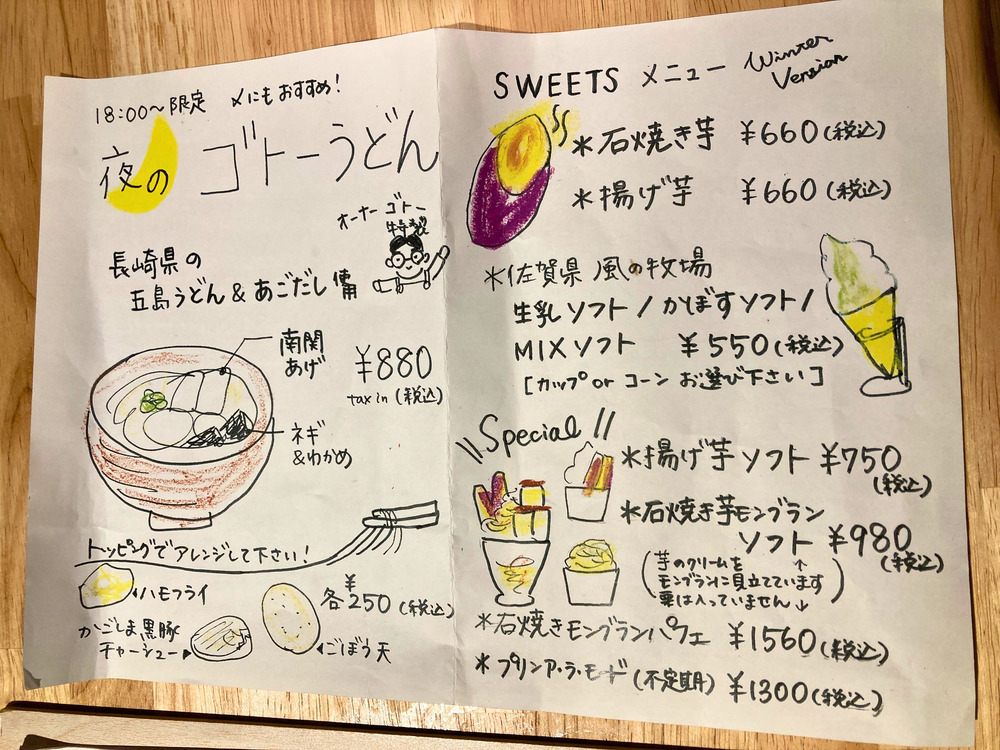 18:00〜限定 〆にもおすすめ!
夜の ゴトーうどん
オーナー ゴトー
特製
長崎県の
五島うどん&あごだし使用
南関
あげ
¥880
tax in (税込)
ネギ
&わかめ
トッピングでアレンジして下さい!
ハモフライ
各¥250(税込)
かごしま黒豚
チャーシュー
ごぼう天
SWEETS メニュー Winter
Version
*石焼き芋 ¥660(税込)
*揚げ芋 ¥660(税込)
*佐賀県 風の牧場
生乳ソフト/かぼすソフト/
MIXソフト ¥550(税込)
[カップ or コーン お選び下さい]
\\Special//
*揚げ芋ソフト ¥750
(税込)
*石焼き芋モンブラン
ソフト ¥980
(税込)
(芋のクリームを ↑
モンブランに見立てています
栗は入っていません↓)
*石焼きモンブランパフェ ¥1560(税込)
*プリンア・ラ・モード(不定期) ¥1300(税込)